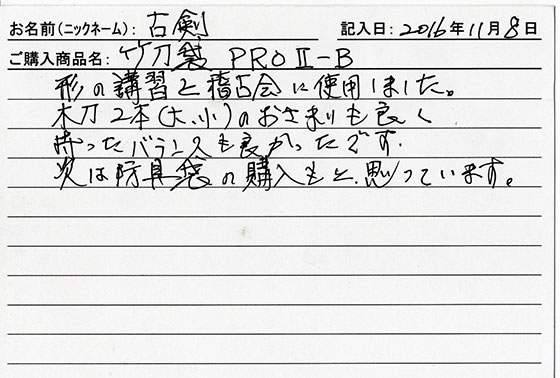 お名前(ニックネーム): 古剣 記入日: 2016年11月8日
ご購入商品名: 竹刀袋 PROⅡ-B
形の講習と稽古会に使用しました。
木刀2本(大、小)のおさまりも良く
持ったバランスも良かったです.
次は防具袋の購入もと.思っています。